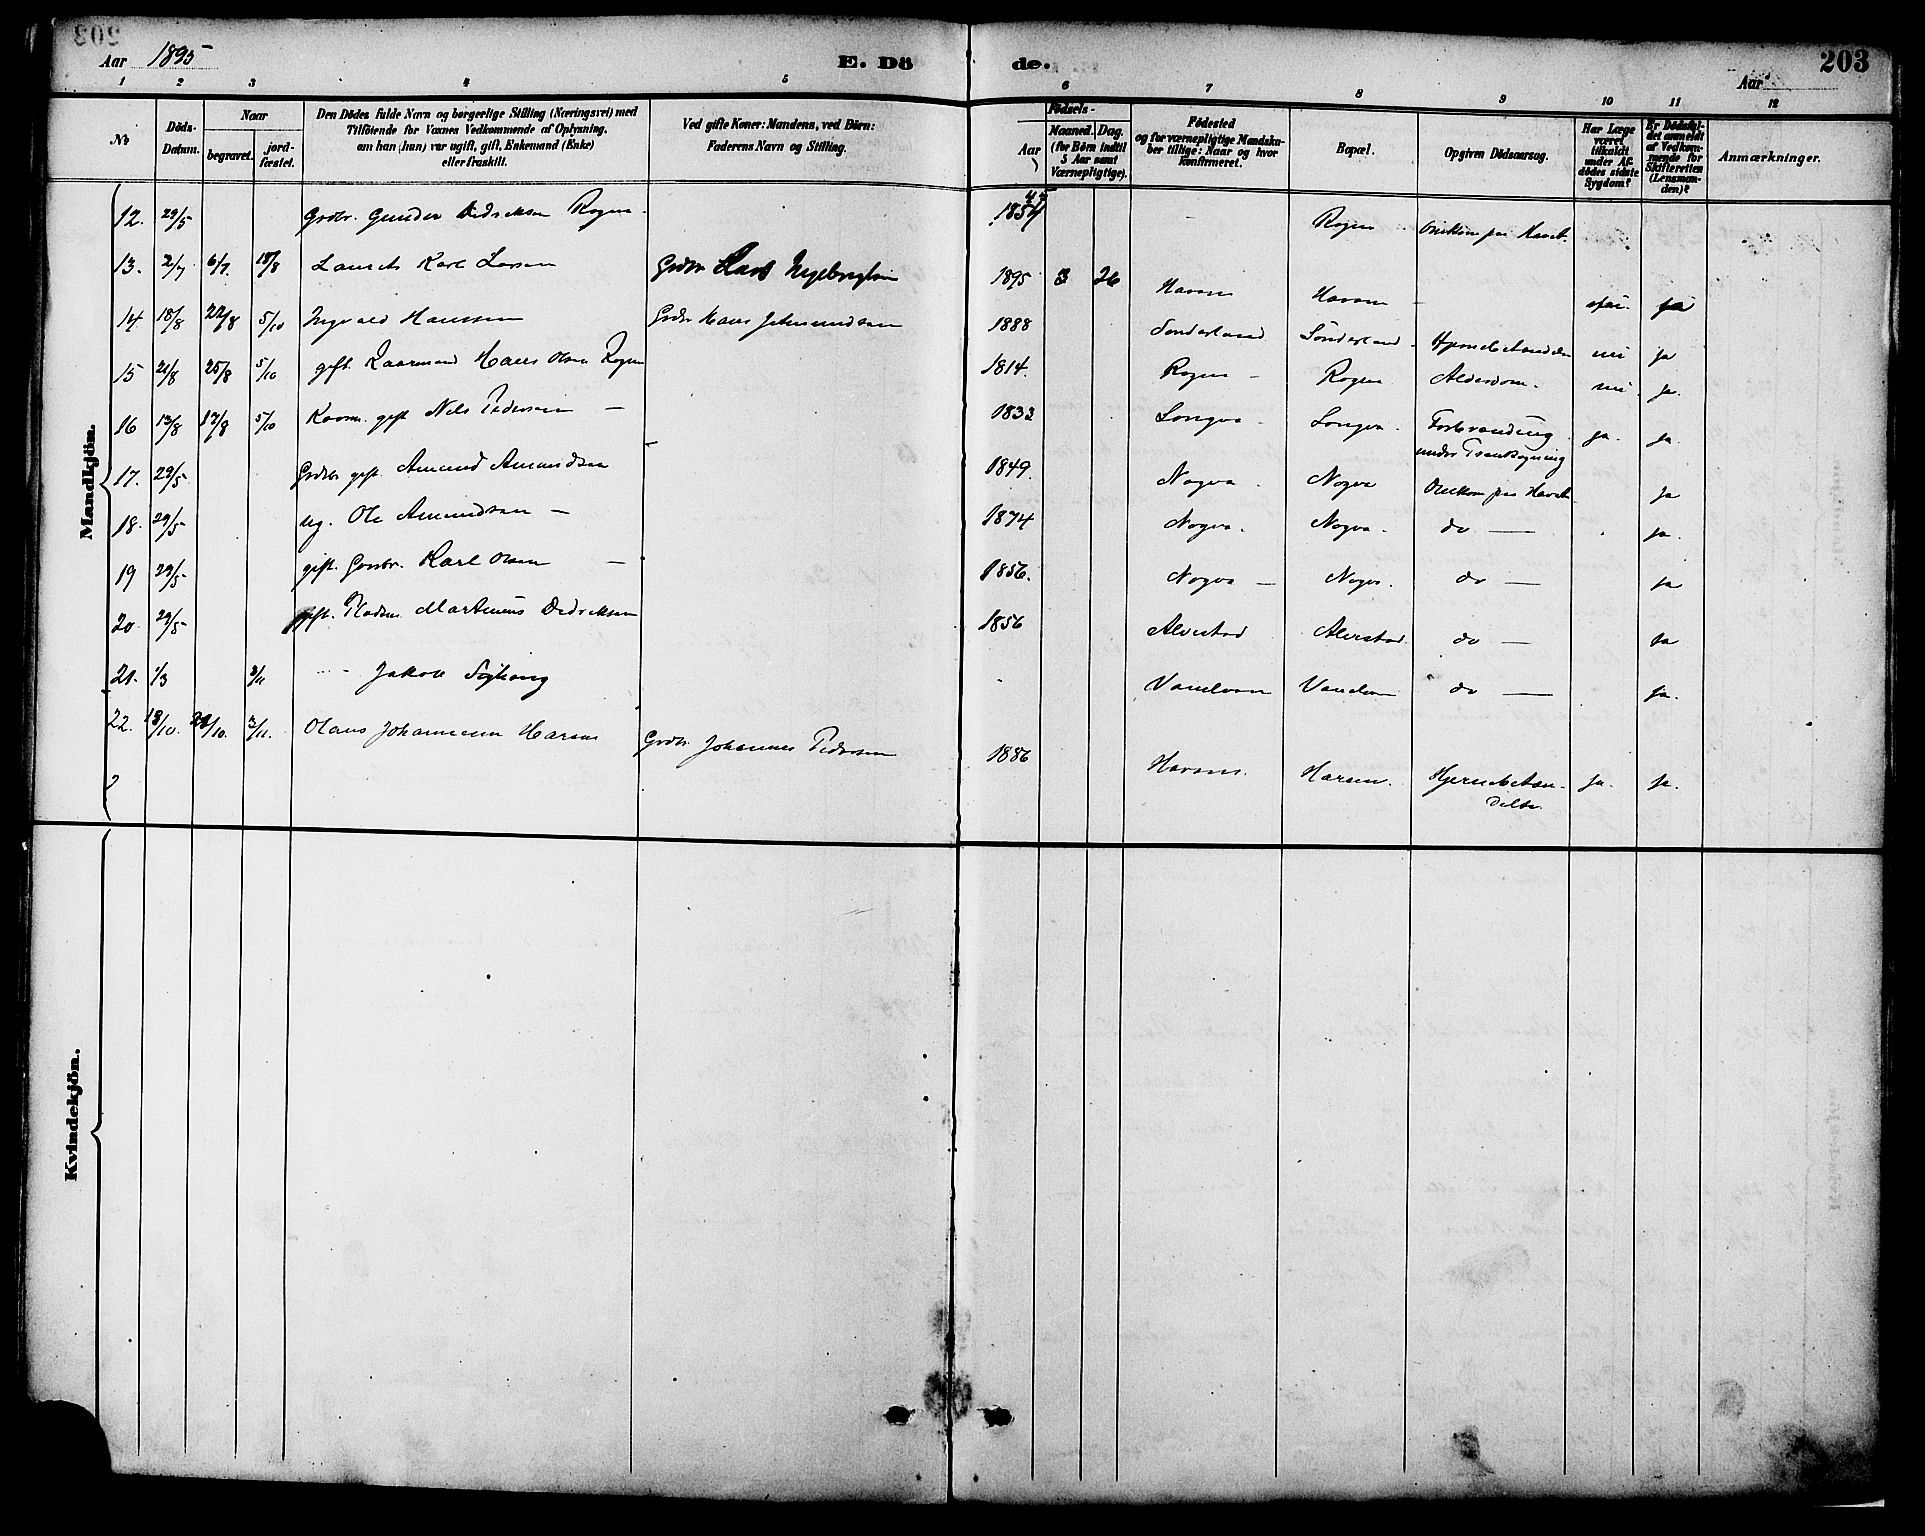 203
Aar 1895
E. Dö de.
Aar
203
1 2 3 4 5 6 7 8 9 10 11 12
No
Döds-Datum.
Naar
begravet.
jord-fæstet.
Den Dödes fulde Navn og borgerlige Stilling (Næringsvei) med
Tilföiende for Voxnes Vedkommende af Oplysning,
om han (hun) var ugift, gift, Enkemand (Enke)
eller fraskilt.
Ved gifte Koner: Mandens, ved Börn:
Faderens Navn og Stilling.
Födsels-
Aar
Maaned. Dag.
(for Börn indtil
5 Aar samt
Værnepligtige).
Födested
og for værnepligtige Mandska-
ber tillige: Naar og hvor
konfirmeret.
Bopæl.
Opgiven Dödsaarsag.
Har Læge
været
tilkaldt
under Af-
dödes sidste
Sygdom?
Er Dödsfal-
det anmeldt
af Vedkom-
mende for
Skifteretten
(Lensman-
den)?
Anmærkninger.
Mandkjön.
12. 29/5 Grdbr. Gunder Didriksen Rogne 1854 Rogne Omkom paa Havet.
13. 2/7 6/7. 18/8 Laurits Karl Larsen Grdbr Lars Ingebrigtsen 1895 3 26 Havsen Havsen ja
14 18/8 22/8 5/10 Ingvald Hanssen Grdbr Hans Johnsen 1888 Sönderland Sönderland. nei ja
15 21/8 25/8 5/10 gift. Kaarmand Hans Olsen Rogne 1814. Rogne Rogne Alderdom. nei. ja.
16 13/8 17/8 5/10 Kaarm. gift Nels Pedersen — 1833 Longva Longva. Forbrænding ja. ja.
under Trankogning
17. 29/5 Grdbr gift. Amund Amundsen 1849. Nogva Nogva Omkom paa Havet ja
18. 29/5 ug. Ole Amundsen — 1874 Nogva. Nogva. do — ja.
19 29/5 gift. Gardbr. Karl Olsen — 1856. Nogva — Nogva. do — ja
20 29/5 gift. Pladsm. Martinus Didriksen 1856 Alvestad Alvestad. do — ja
21. 1/3 3/11 Jakob do — ja.
22. 18/10. 24/10. 3/11. Olaus Johannesen Grdbr. Johannes Pedersen 1886 Hjernebetæn- ja. ja.
delse
Kvindekjön.